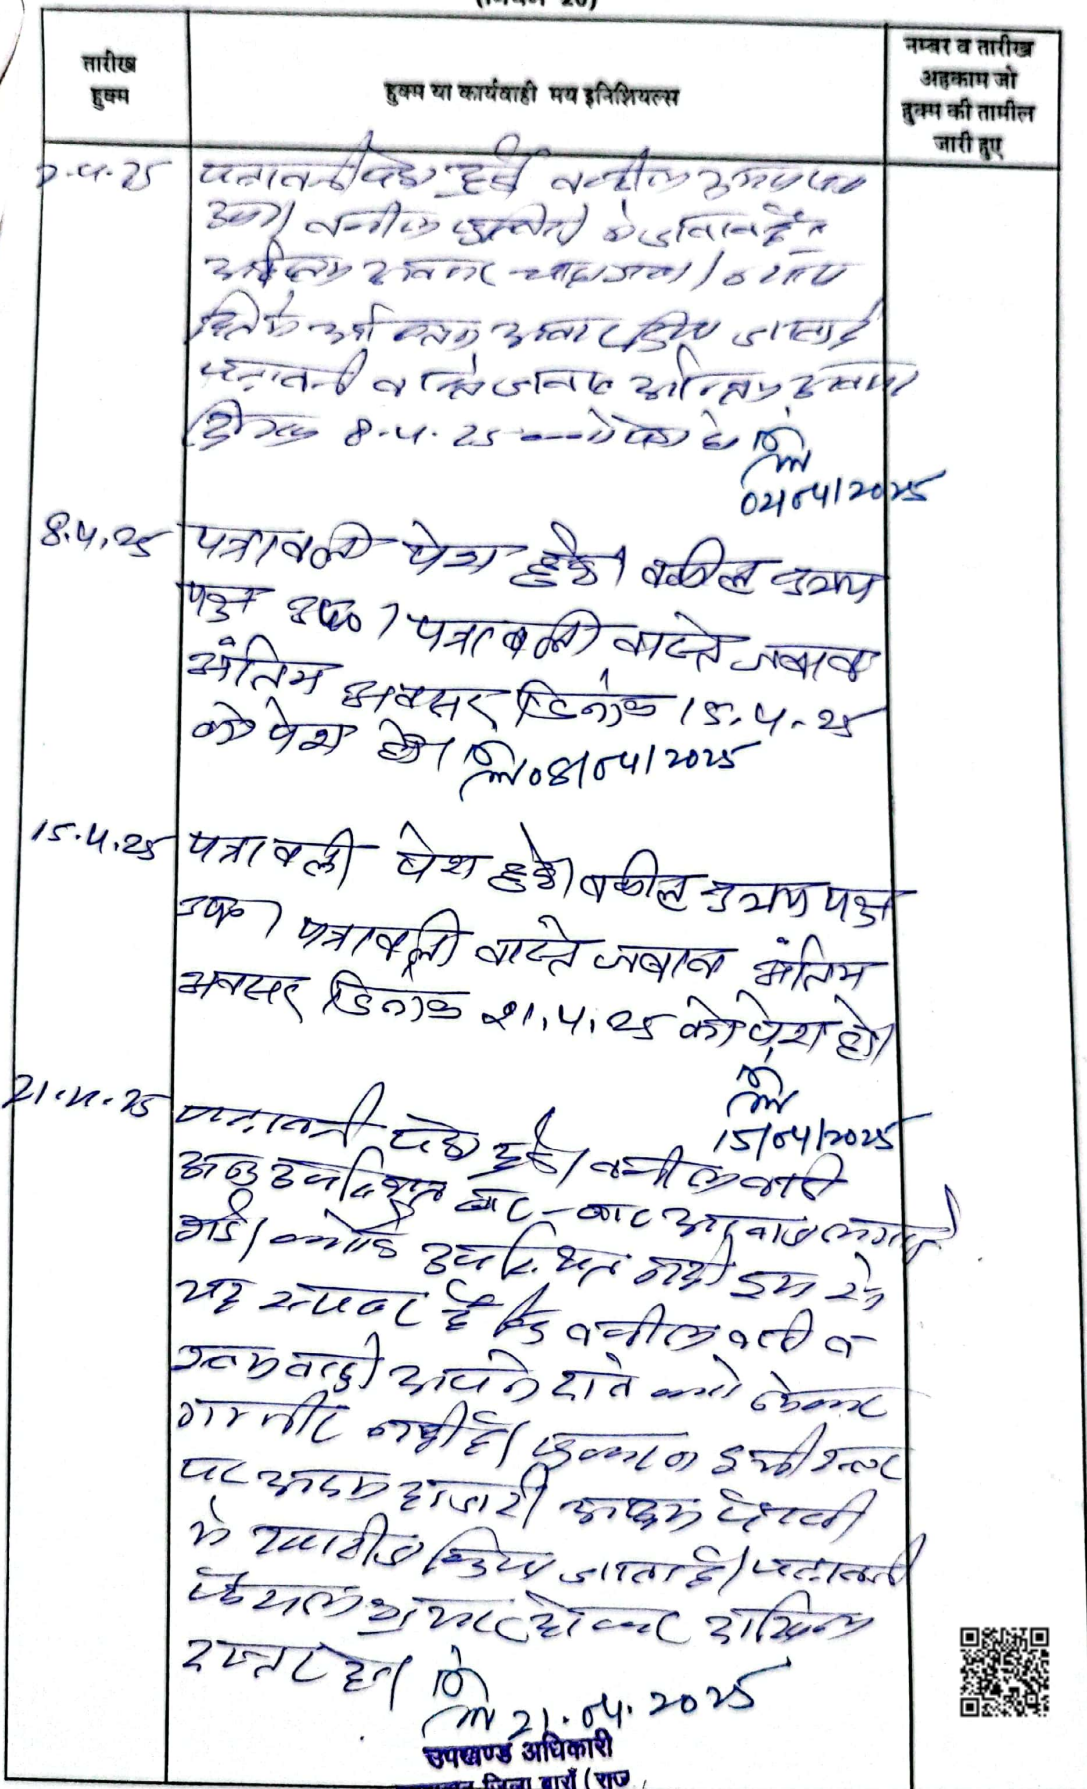 (नियम 26)
तारीख
हुक्म
हुक्म या कार्यवाही मय इनिशियल्स
नम्बर व तारीख
अहकाम जो
हुक्म की तामील
जारी हुए
2.4.25 पत्रावली पेश हुई वकील उभयपक्ष
उप0। वकील
अन्तिम अवसर चाहा गया। न्याय
हित में अन्तिम अवसर दिया जाता है
पत्रावली वास्ते जवाब अन्तिम अवसर
दिनांक 8.4.25 को पेश हो
02/04/2025
8.4.25 पत्रावली पेश हुई। वकील उभय
पक्ष उप0। पत्रावली वास्ते जबाब
अंतिम अवसर दिनांक 15.4.25
को पेश हो। 08/04/2025
15.4.25 पत्रावली पेश हुई। वकील उभय पक्ष
उप0। पत्रावली वास्ते जबाब अंतिम
अवसर दिनांक 21.4.25 को पेश हो।
15/04/2025
21.4.25 पत्रावली पेश हुई। वकील वादी
अनुउपस्थित बार-बार आवाज लगाई
गई। कोई उपस्थित नही इस से
यह स्पष्ट है कि वकील वादी व
स्वयम वादी अपने दावे को लेकर
गम्भीर नही है। प्रकरण इसी स्तर
पर अदम हाजरी अदम पेरवी
मे खारीज किया जाता है। पत्रावली
फैसल शुमार होकर दाखिल
दफ्तर हो।
21.04.2025
उपखण्ड अधिकारी
जिला बाराँ (राज